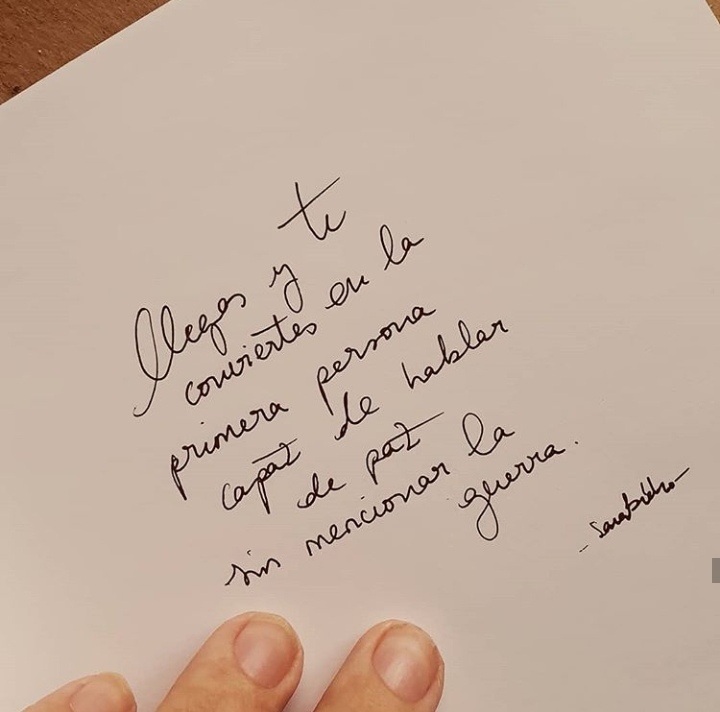 llegas y te
conviertes en la
primera persona
capaz de hablar
de paz
sin mencionar la
guerra.